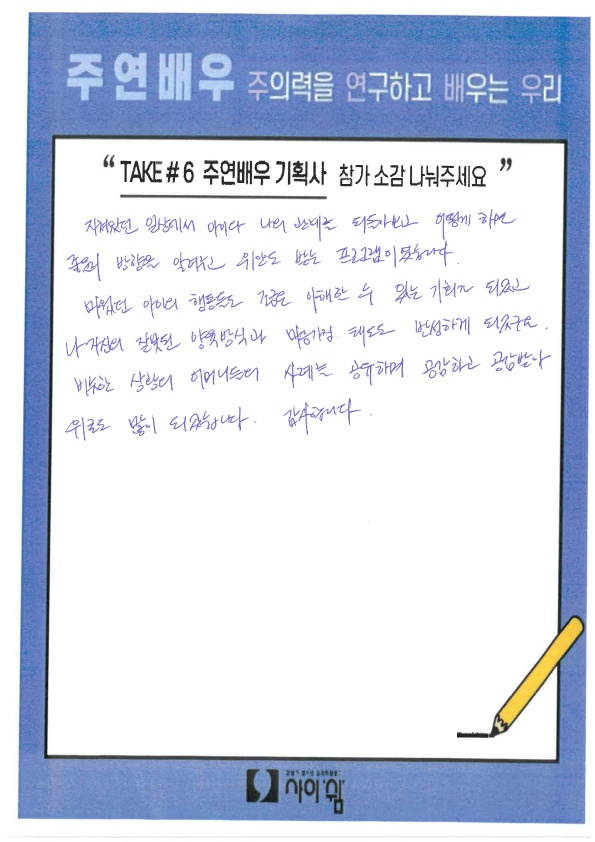 주연배우 주의력을 연구하고 배우는 우리
“ TAKE # 6 주연배우 기획사 참가 소감 나눠주세요 ”
지쳐왔던 일상에서 아이와 나의 관계를 되돌아보고 어떻게 하면
좋을지 방향을 알려주고 위안도 받는 프로그램이었습니다.
미웠던 아이의 행동들도 조금은 이해할 수 있는 기회가 되었고
나 자신의 잘못된 양육방식과 마음가짐. 태도도 반성하게 되었구요.
비슷한 상황의 어머니들의 사례를 공유하며 공감하고 공감받아
위로도 많이 되었습니다. 감사합니다.
사이쉼